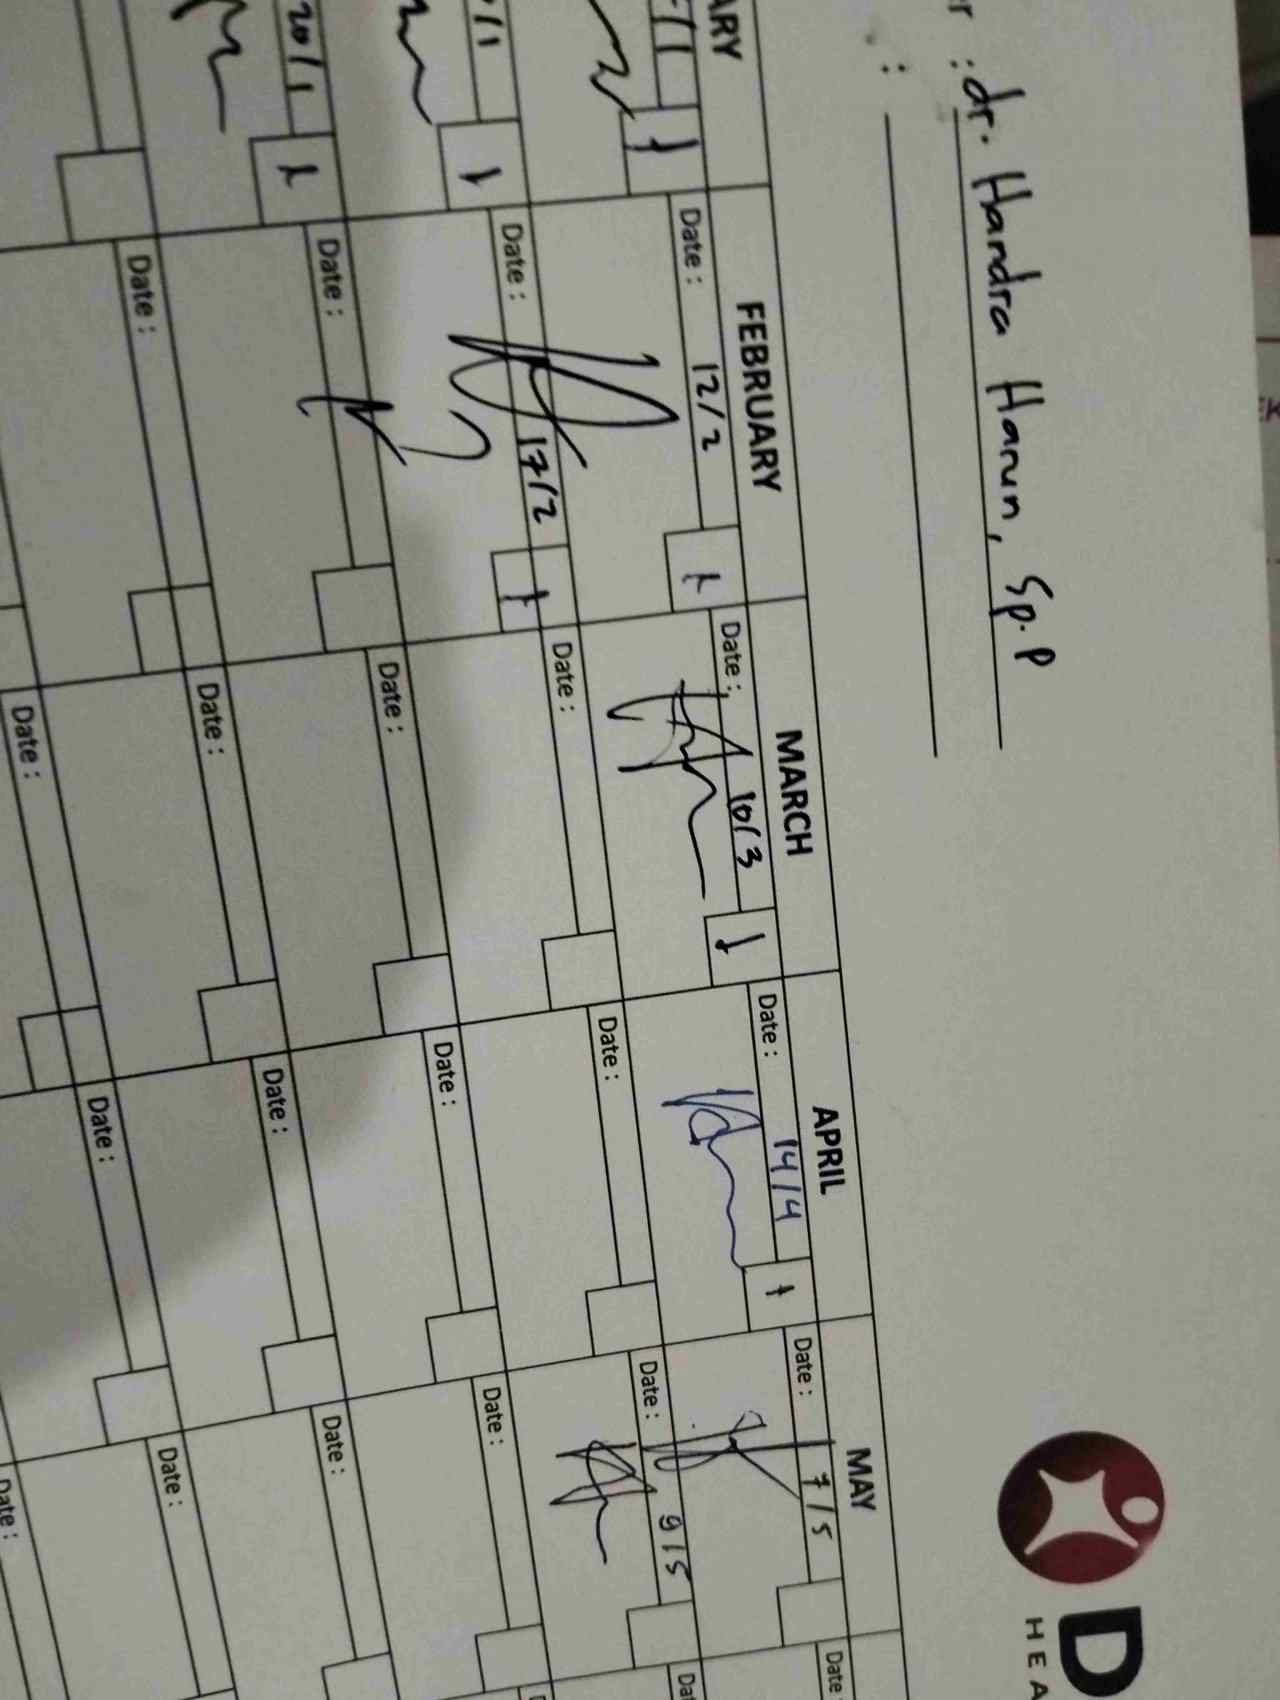 : dr. Handra Harun, Sp.P
:
D
HEA
FEBRUARY MARCH APRIL MAY
Date : 12/2 1 Date : 10/3 1 Date : 14/4 1 Date : 7/5 Date
1 Date : 17/2 1 Date : Date : Date : 9/5 Dat
20/1 1 Date : Date : Date : Date :
Date : Date : Date : Date :
Date : Date : Date :
Date :